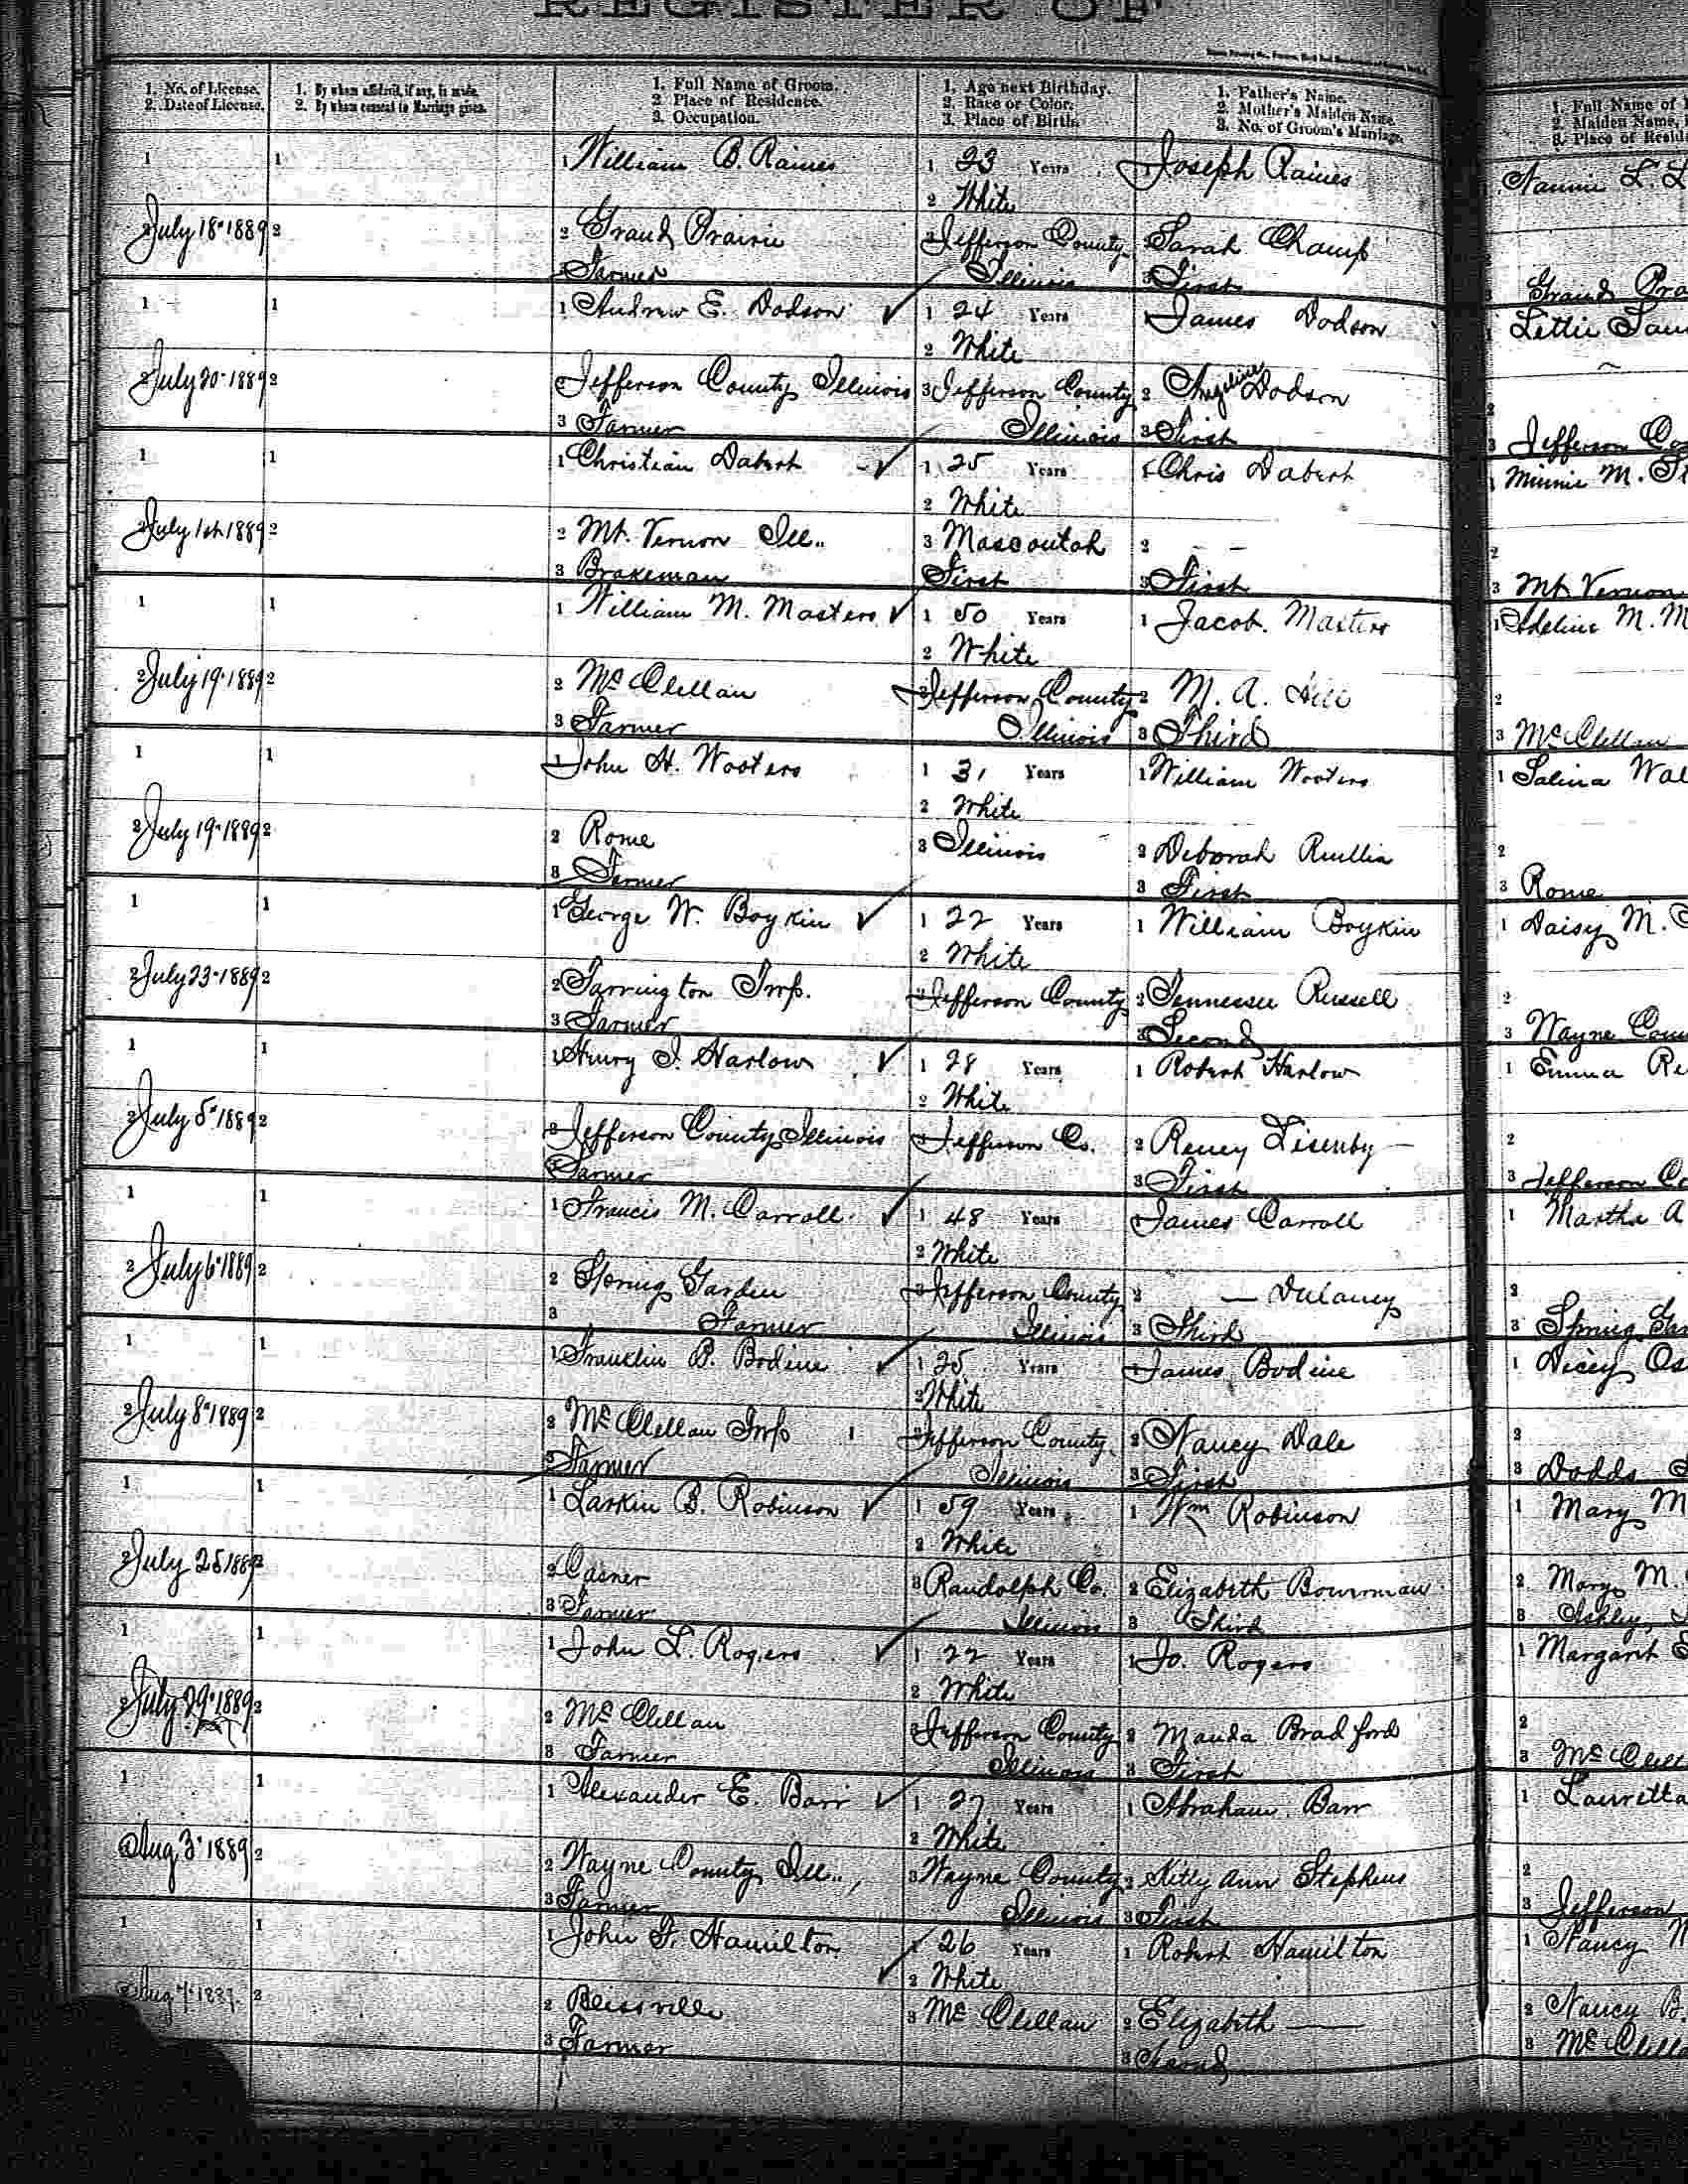 REGISTER OF
1. No. of License.
2. Date of License.
1. By whom affidavit, if any, is made.
2. By whom consent to Marriage given.
1. Full Name of Groom.
2 Place of Residence.
3. Occupation.
1. Age next Birthday.
2. Race or Color.
3. Place of Birth.
1. Father's Name.
2. Mother's Maiden Name.
3. No. of Groom's Marriage.
1. Full Name of
2. Maiden Name,
3. Place of Resid
1 1 1 William B. Raines 1 23 Years 1 Joseph Raines Nannie L. L
2 White
2 July 18" 1889 2 2 Grand Prairie 3 Jefferson County 2 Sarah Champ
3 Farmer Illinois 3 First 3 Grand Pra
1 1 1 Andrew E. Dodson 1 24 Years 1 James Dodson 1 Lettie
2 White
2 July 20" 1889 2 2 Jefferson County Illinois 3 Jefferson County 2 Angeline Dodson 2
3 Farmer Illinois 3 First 3 Jefferson Co
1 1 1 Christian Dabert 1 25 Years 1 Chris Dabert 1 Minnie M. St
2 White
2 July 1st 1889 2 2 Mt. Vernon Ill.. 3 Mascoutah 2 – – 2
3 Brakeman First 3 First 3 Mt Vernon
1 1 1 William M. Masters 1 50 Years 1 Jacob Masters 1 Adeline M. M
2 White
2 July 19" 1889 2 2 McClellan 3 Jefferson County 2 M. A. 2
3 Farmer Illinois 3 Third 3 McClellan
1 1 1 John H. Wooters 1 31 Years 1 William Wooters 1 Salina Wal
2 White
2 July 19" 1889 2 2 Rome 3 Illinois 2 Deborah 2
3 Farmer 3 First 3 Rome
1 1 1 George W. Boykin 1 22 Years 1 William Boykin 1 Daisy M.
2 White
2 July 23" 1889 2 2 Farrington Twp. 3 Jefferson County 2 Tennessee Russell 2
3 Farmer 3 Second 3 Wayne Coun
1 1 1 Henry J. Harlow 1 28 Years 1 Robert Harlow 1 Emma Re
2 White
2 July 5" 1889 2 2 Jefferson County Illinois 3 Jefferson Co. 2 Reney Lisenby 2
3 Farmer 3 First 3 Jefferson Co
1 1 1 Francis M. Carroll 1 48 Years 1 James Carroll 1 Martha A
2 White
2 July 6" 1889 2 2 Spring Garden 3 Jefferson County 2 — Dulaney 2
3 Farmer Illinois 3 Third 3 Spring Gar
1 1 1 Franklin B. Bodine 1 25 Years 1 James Bodine 1 Dicey Os
2 White
2 July 8" 1889 2 2 McClellan Twp 3 Jefferson County 2 Nancy Dale 2
3 Farmer Illinois 3 First 3 Dodds
1 1 1 Larkin B. Robinson 1 59 Years 1 Wm Robinson 1 Mary M
2 White
2 July 25 1889 2 2 Casner 3 Randolph Co. 2 Elizabeth Bowman 2 Mary M.
3 Farmer Illinois 3 Third 3 Ashley,
1 1 1 John L. Rogers 1 22 Years 1 Jo. Rogers 1 Margaret S
2 White
2 July 29" 1889 2 2 McClellan 3 Jefferson County 2 Manda Bradford 2
3 Farmer Illinois 3 First 3 McClell
1 1 1 Alexander E. Barr 1 27 Years 1 Abraham Barr 1 Lauretta
2 White
2 Aug 3" 1889 2 2 Wayne County Ill.., 3 Wayne County 2 Kitty Ann Stephens 2
3 Farmer Illinois 3 First 3 Jefferson
1 1 1 John F. Hamilton 1 26 Years 1 Robert Hamilton 1 Nancy
2 White
2 Aug 7" 1889 2 2 Blissville 3 McClellan 2 Elizabeth — 2 Nancy B.
3 Farmer 3 Second 3 McClella